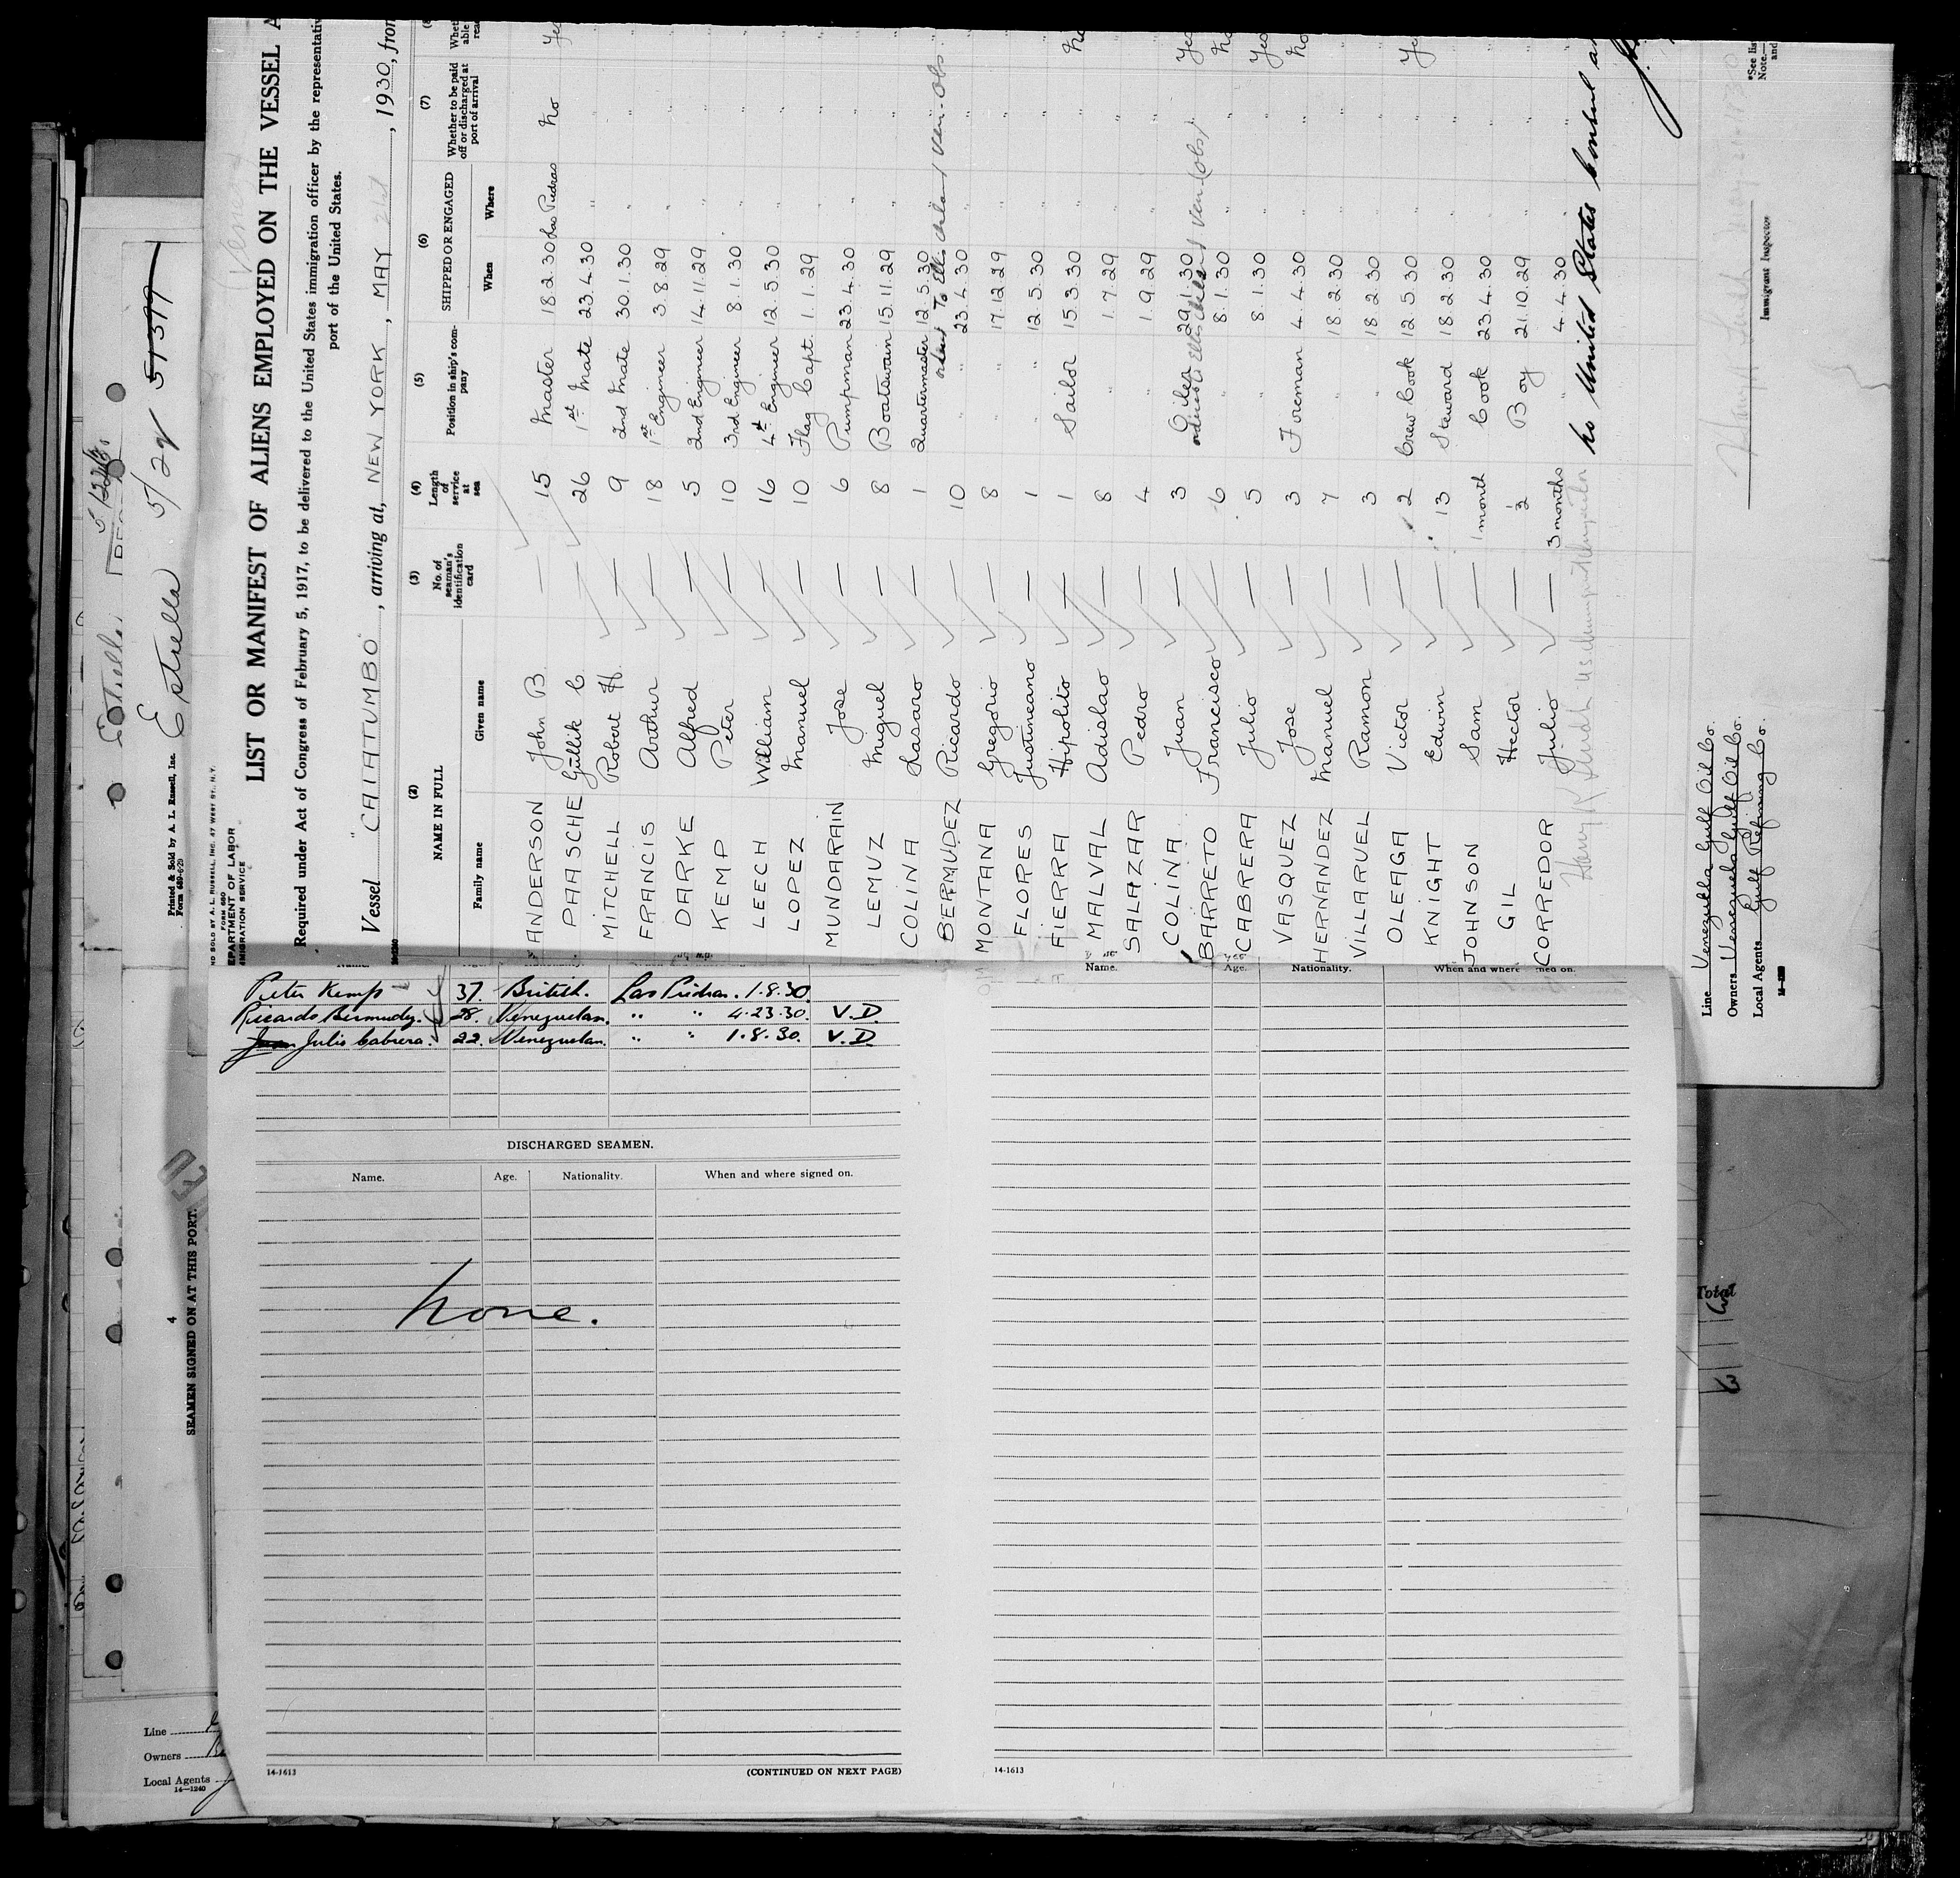 LIST OR MANIFEST OF ALIENS EMPLOYED ON THE VESSEL A
Required under Act of Congress of February 5, 1917, to be delivered to the United States immigration officer by the representativ
port of the United States.
Vessel "CATATUMBO", arriving at, NEW YORK, MAY 21st, 1930, from
(2) (3) (4) (5) (6) (7)
NAME IN FULL
Family name Given name
No. of seaman's identification card
Length of service at sea
Position in ship's company
SHIPPED OR ENGAGED
When Where
Whether to be paid off or discharged at port of arrival
ANDERSON John B. — 15 Master 18.2.30 Las Piedras No Yes
PAASCHE Gullik C. — 26 1st Mate 23.4.30 " "
MITCHELL Robert H. — 9 2nd Mate 30.1.30 " "
FRANCIS Arthur — 18 1st Engineer 3.8.29 " "
DARKE Alfred — 5 2nd Engineer 14.11.29 " "
KEMP Peter — 10 3rd Engineer 8.1.30 " "
LEECH William — 16 4th Engineer 12.5.30 " "
LOPEZ Manuel — 10 Flag Capt. 1.1.29 " "
MUNDARAIN Jose — 6 Pumpman 23.4.30 " "
LEMUZ Miguel — 8 Boatswain 15.11.29 " "
COLINA Lasaro — 1 Quartermaster 12.5.30 " "
BERMUDEZ Ricardo — 10 " 23.4.30 " "
MONTANA Gregorio — 8 " 17.12.29 " "
FLORES Justineano — 1 " 12.5.30 " "
FIERRA Hipolito — 1 Sailor 15.3.30 " " No
MALVAL Adislao — 8 " 1.7.29 " "
SALAZAR Pedro — 4 " 1.9.29 " "
COLINA Juan — 3 Oiler 29.1.30 " " Yes
BARRETO Francisco — 6 " 8.1.30 " " No
CABRERA Julio — 5 " 8.1.30 " " Yes
VASQUEZ Jose — 3 Foreman 4.4.30 " " No
HERNANDEZ Manuel — 7 " 18.2.30 " "
VILLARUEL Ramon — 3 " 18.2.30 " "
OLEAGA Victor — 2 Crew Cook 12.5.30 " " Yes
KNIGHT Edwin — 13 Steward 18.2.30 " "
JOHNSON Sam — 1 month Cook 23.4.30 " "
GIL Hector — 1/2 Boy 21.10.29 " "
CORREDOR Julio — 3 months " 4.4.30 " "
No United States Consul
Immigrant Inspector
Line Venezuela Gulf Oil Co.
Owners Venezuela Gulf Oil Co.
Local Agents Gulf Refining Co.
Printed & Sold by A. L. Russell, Inc.
Estrella 5/29 51399
4
SEAMEN SIGNED ON AT THIS PORT.
Peter Kemp 37. British. Las Piedras. 1.8.30
Ricardo Bermudez. 28. Venezuelan. " " 4.23.30. V.D.
Julio Cabrera. 22. Venezuelan. " " 1.8.30. V.D.
DISCHARGED SEAMEN.
Name. Age. Nationality. When and where signed on.
None.
14-1613
(CONTINUED ON NEXT PAGE)
Name. Age. Nationality.
14-1613
Total
Line
Owners
Local Agents
14—1240